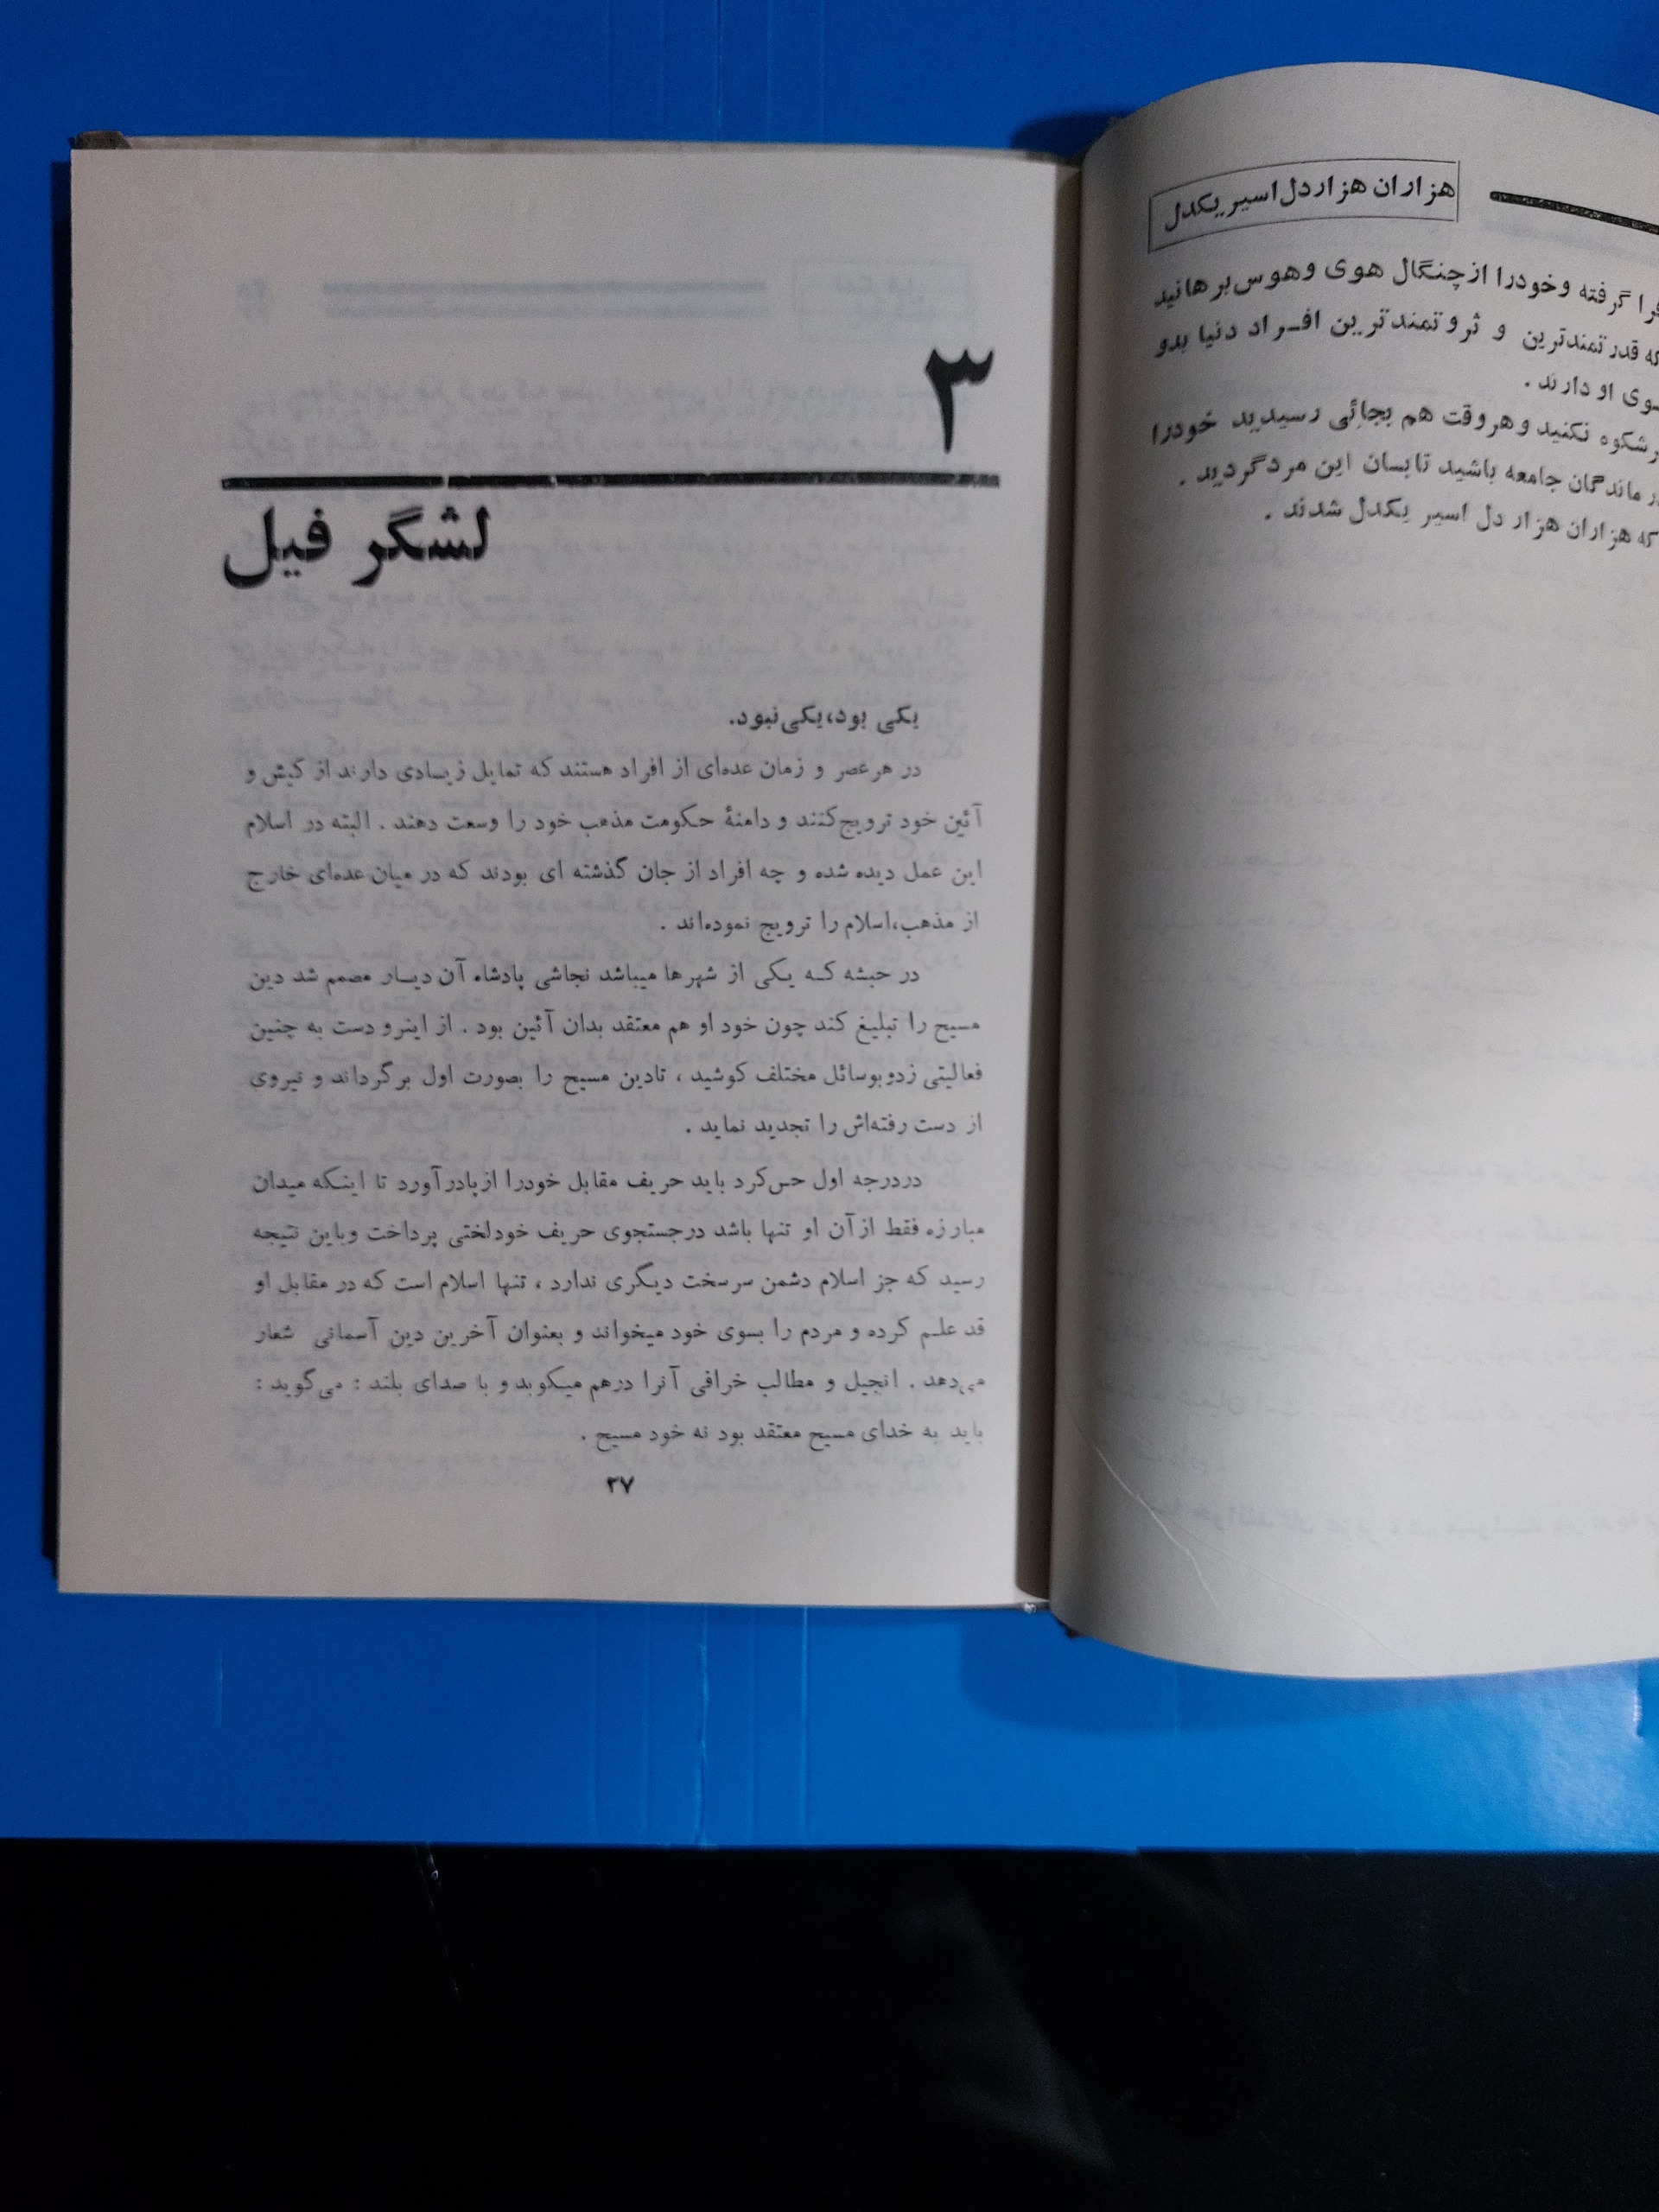 هزاران هزاردل اسیر یکدل
گرفته وخودرا ازچنگال هوی وهوس‌برهانید
قدرتمندترین و ثروتمندترین افـراد دنیا بدو
او دارند .
شکوه نکنید وهروقت هم بجائی رسیدید خودرا
ماندگان جامعه باشید تابسان این مردگردید .
که هزاران هزار دل اسیر یکدل شدند .
۳
لشگر فیل
یکی بود،یکی‌نبود.
در هرعصر و زمان عده‌ای از افراد هستند که تمایل زیـادی دارند از کیش و
آئین خود ترویج‌کنند و دامنهٔ حکومت مذهب خود را وسعت دهند . البته در اسلام
این عمل دیده شده و چه افراد از جان گذشته ای بودند که در میان عده‌ای خارج
از مذهب،اسلام را ترویج نموده‌اند .
در حبشه کـه یـکی از شهرها میباشد نجاشی پادشاه آن دیـار مصمم شد دین
مسیح را تبلیغ کند چون خود او هم معتقد بدان آئین بود . از اینرو دست به چنین
فعالیتی زدوبوسائل مختلف کوشید ، تادین مسیح را بصورت اول برگرداند و نیروی
از دست رفته‌اش را تجدید نماید .
دردرجه اول حس‌کرد باید حریف مقابل خودرا ازپادرآورد تا اینـکه میدان
مبارزه فقط ازآن او تنها باشد درجستجوی حریف خودلختی پرداخت وباین نتیجه
رسید که جز اسلام دشمن سرسخت دیـگری ندارد ، تنها اسلام است که در مقابل او
قد علـم کرده و مردم را بسوی خود میخواند و بعنوان آخرین دین آسمانی شعار
می‌دهد . انجیل و مطالب خرافی آنرا درهم میـکوبد و با صدای بلند : می‌گوید :
باید به خدای مسیح معتقد بود نه خود مسیح .
۲۷